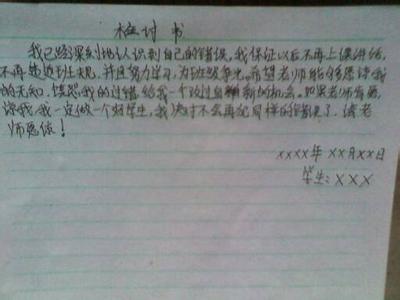 检讨书
我已经深刻地认识到自己的错误,我保证以后不再上课讲话,
不再违边班规,并且努力学习,为班级争光。希望老师能够原谅我
的无知,饶恕我的过错给我一个改过自新的机会。如果老师肯原
谅我,我一定做一个好学生,我决对不会再犯同样的错误了,请老
师愿谅!
xxxx年xx月xx日
学生:xxx